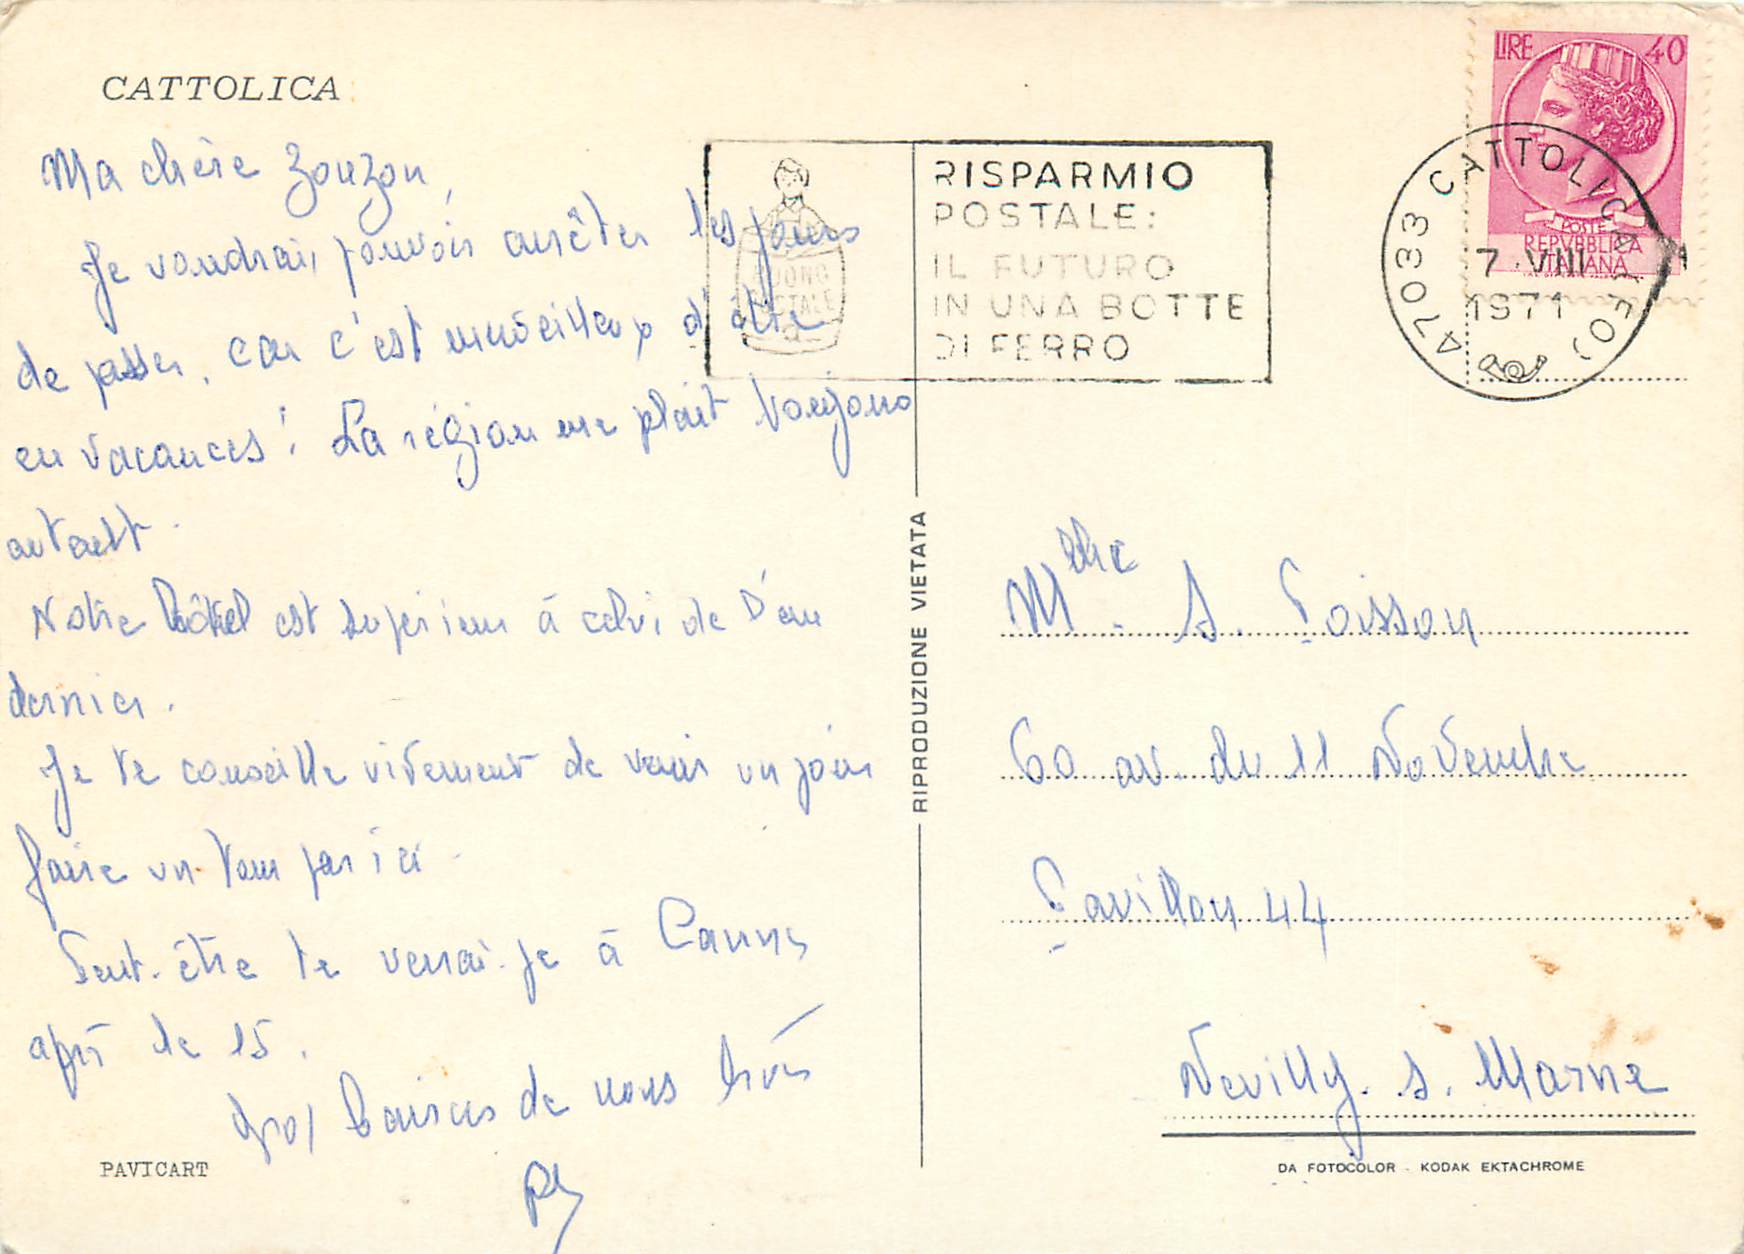 CATTOLICA
Ma chère Zouzou,
Je voudrais pouvoir arrêter les jours
de passer, car c'est merveilleux d'être
en vacances! La région me plait toujours
autant.
Notre hôtel est supérieur à celui de l'an
dernier.
Je te conseille vivement de venir un jour
faire un tour par ici.
Peut-être te verrai-je à Cannes
après le 15.
gros baisers de nous trois
PAVICART
RIPRODUZIONE VIETATA
BUONO
POSTALE
RISPARMIO
POSTALE:
IL FUTURO
IN UNA BOTTE
DI FERRO
LIRE 40
POSTE
REPVBBLICA
ITALIANA
47033 CATTOLICA (FO)
7 . VIII
1971
Mlle S. Poisson
60 av. du 11 Novembre
Pavillon 44
Neuilly. s. Marne
DA FOTOCOLOR - KODAK EKTACHROME